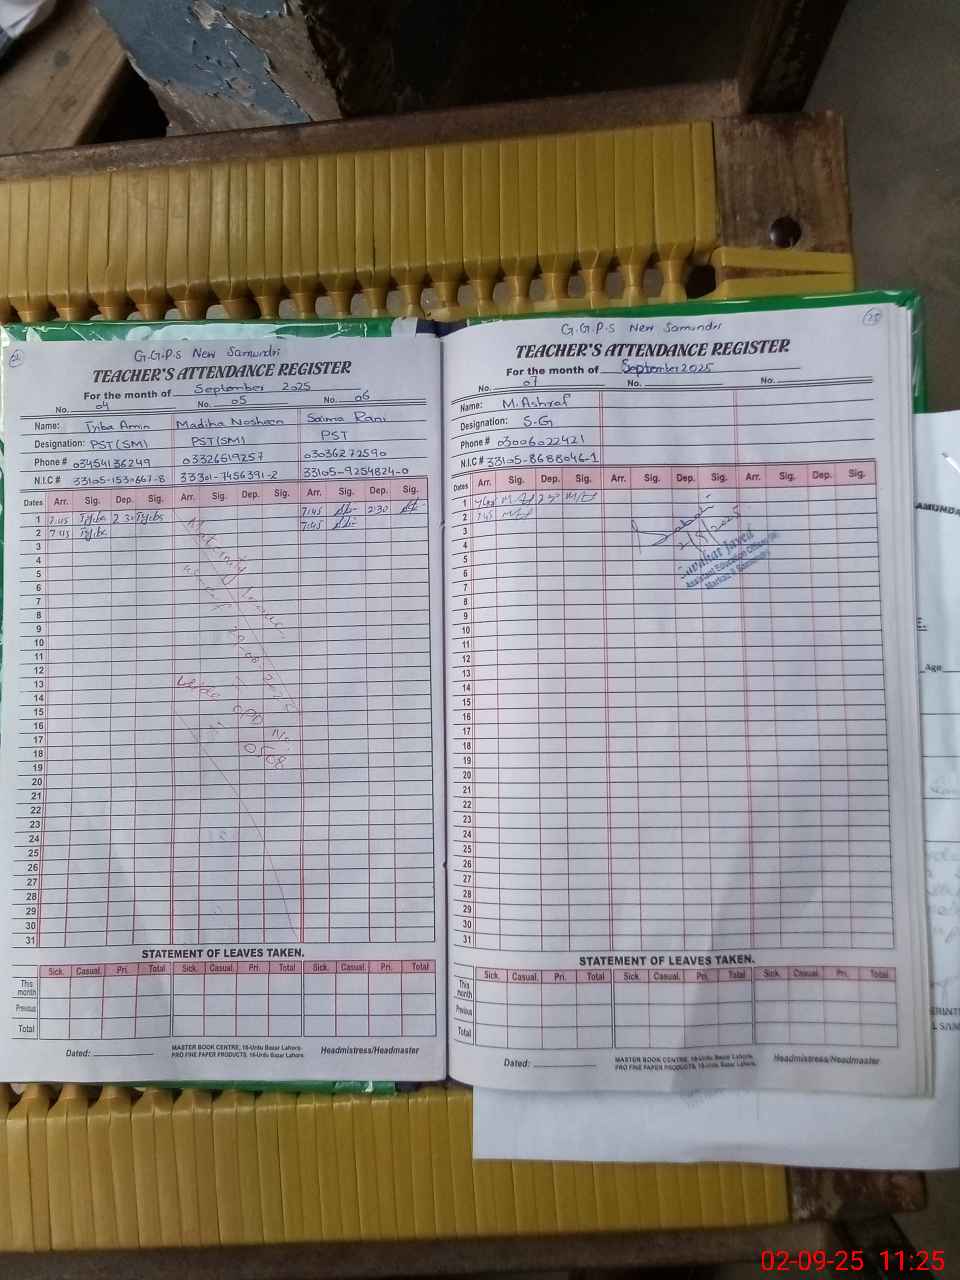 G.G.P.S New Samundri
TEACHER'S ATTENDANCE REGISTER
For the month of September 2025
No. 04 No. 05 No. 06
Name: Tyiba Amin Madiha Nosheen Saima Rani
Designation: PST(SM) PST(SM) PST
Phone # 03454136249 03326519257 03036272590
N.I.C # 33105-153-0667-8 33301-7456391-2 33105-9254824-0
Dates Arr. Sig. Dep. Sig. Arr. Sig. Dep. Sig. Arr. Sig. Dep. Sig.
1 7:45 Tyiba 2:30 Tyiba 7:45 2:30
2 7:45 Tyiba 7:45
3
4
5
6
7
8
9
10
11
12
13
14
15
16
17
18
19
20
21
22
23
24
25
26
27
28
29
30
31
STATEMENT OF LEAVES TAKEN.
Sick. Casual. Pri. Total Sick. Casual. Pri. Total Sick. Casual. Pri. Total
This month
Previous
Total
Dated: MASTER BOOK CENTRE, 16-Urdu Bazar Lahore. Headmistress/Headmaster
PRO FINE PAPER PRODUCTS, 16-Urdu Bazar Lahore.
25
G.G.P.S New Samundri
TEACHER'S ATTENDANCE REGISTER
For the month of September 2025
No. 07 No. No.
Name: M.Ashraf
Designation: S.G
Phone # 03006022421
N.I.C # 33105-8688046-1
Dates Arr. Sig. Dep. Sig. Arr. Sig. Dep. Sig. Arr. Sig. Dep. Sig.
1
2 7:45
3
4
5
6
7
8
9
10
11
12
13
14
15
16
17
18
19
20
21
22
23
24
25
26
27
28
29
30
31
Assistant Education Officer
STATEMENT OF LEAVES TAKEN.
Sick. Casual. Pri. Total Sick. Casual. Pri. Total Sick. Casual. Pri. Total
This month
Previous
Total
Dated: MASTER BOOK CENTRE, 16-Urdu Bazar Lahore. Headmistress/Headmaster
PRO FINE PAPER PRODUCTS, 16-Urdu Bazar Lahore.
Age
02-09-25 11:25